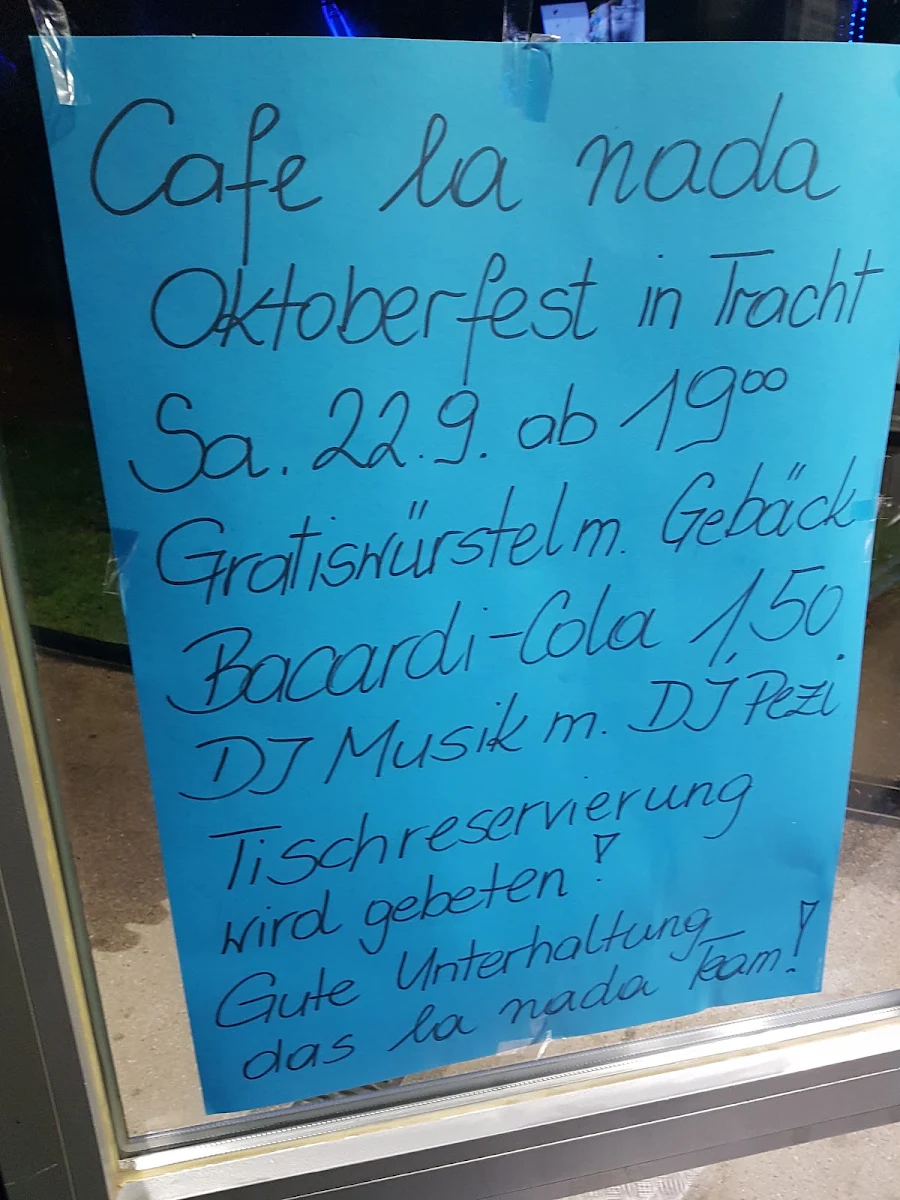 Cafe la nada
Oktoberfest in Tracht
Sa. 22.9. ab 19⁰⁰
Gratiswürstel m. Gebäck
Bacardi-Cola 1,50
DJ Musik m. DJ Pezi
Tischreservierung
wird gebeten!
Gute Unterhaltung
das la nada Team!